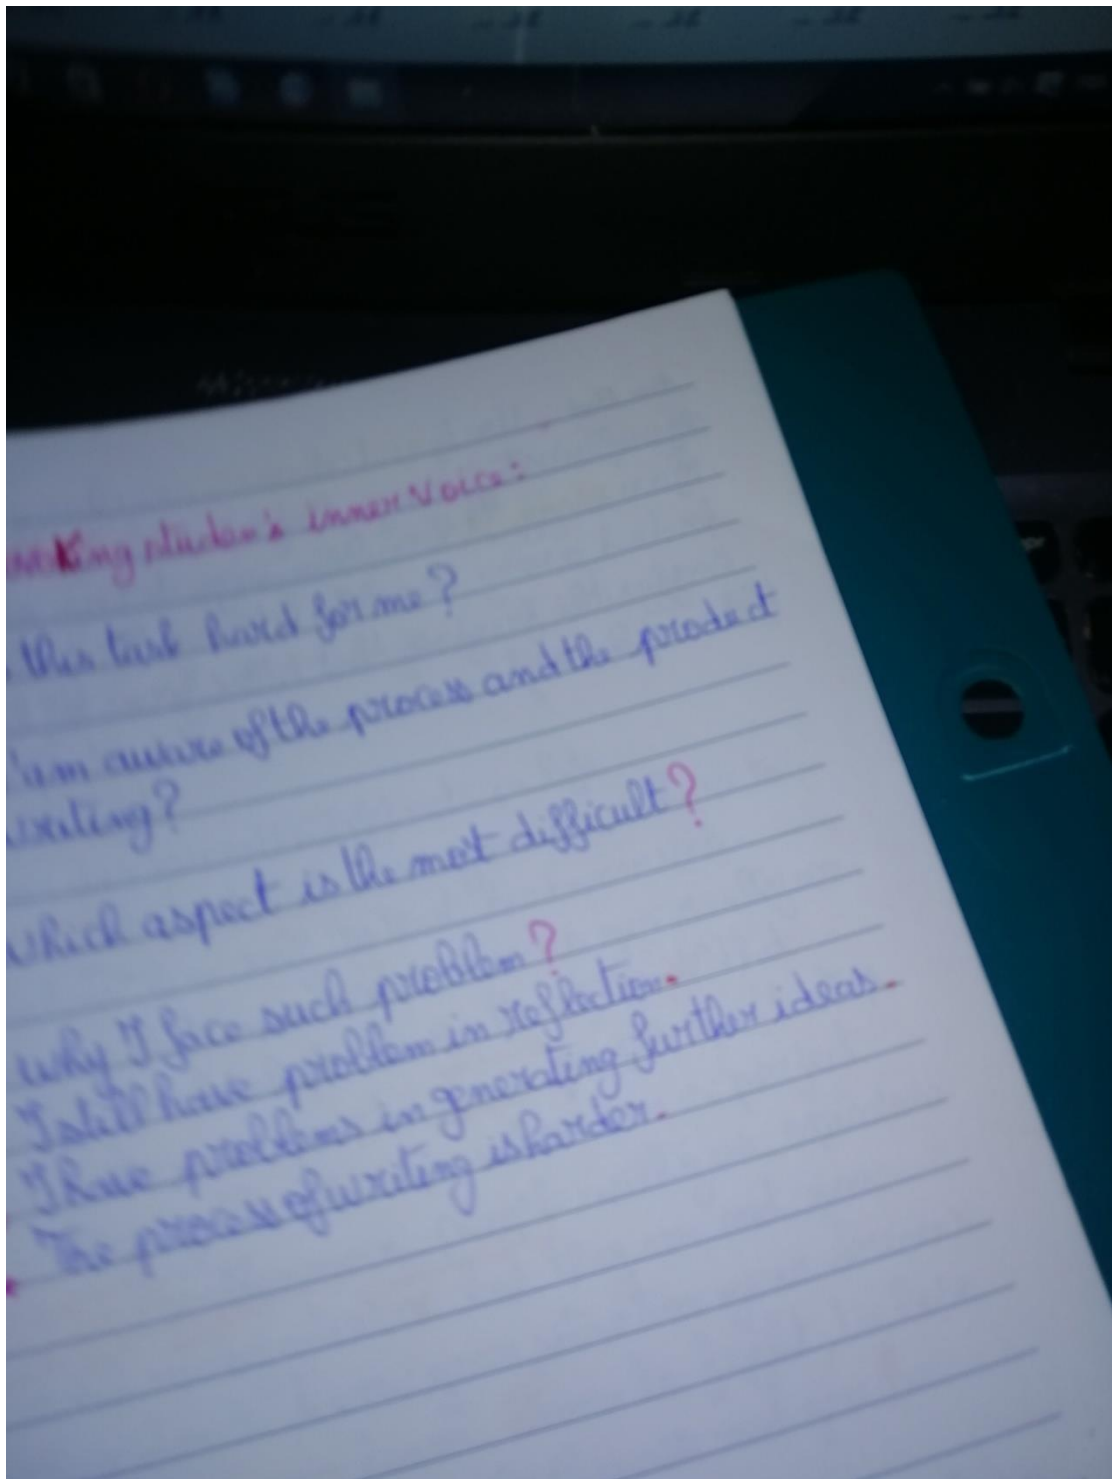 king studen's inner Voice:
this task hard for me?
I'am aware of the process and the product
writing?
which aspect is the most difficult?
why I face such problem?
I still have problem in reflection.
I have problems in generating further ideas.
The process of writing is harder.